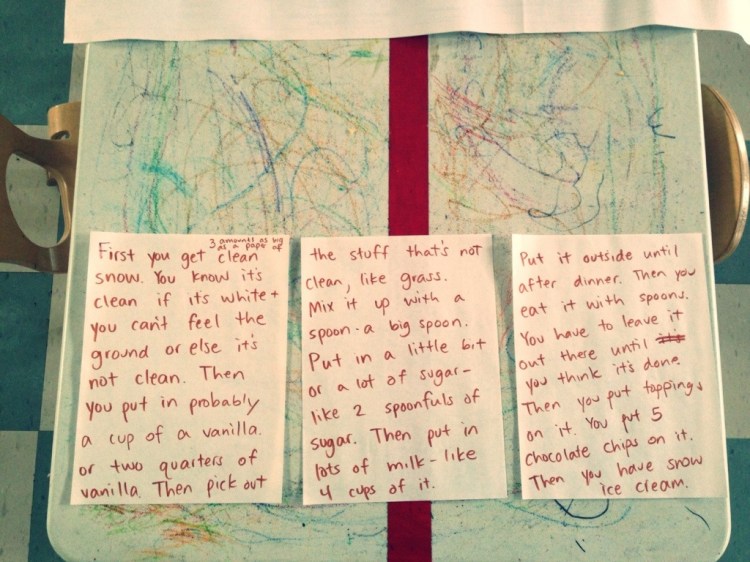 3 amounts as big
as a paper of
First you get clean
snow. You know it's
clean if it's white +
you can't feel the
ground or else it's
not clean. Then
you put in probably
a cup of a vanilla.
or two quarters of
vanilla. Then pick out
the stuff that's not
clean, like grass.
Mix it up with a
spoon - a big spoon.
Put in a little bit
or a lot of sugar -
like 2 spoonfuls of
sugar. Then put in
lots of milk - like
4 cups of it.
Put it outside until
after dinner. Then you
eat it with spoons.
You have to leave it
out there until
you think it's done.
Then you put toppings
on it. You put 5
chocolate chips on it.
Then you have snow
ice cream.